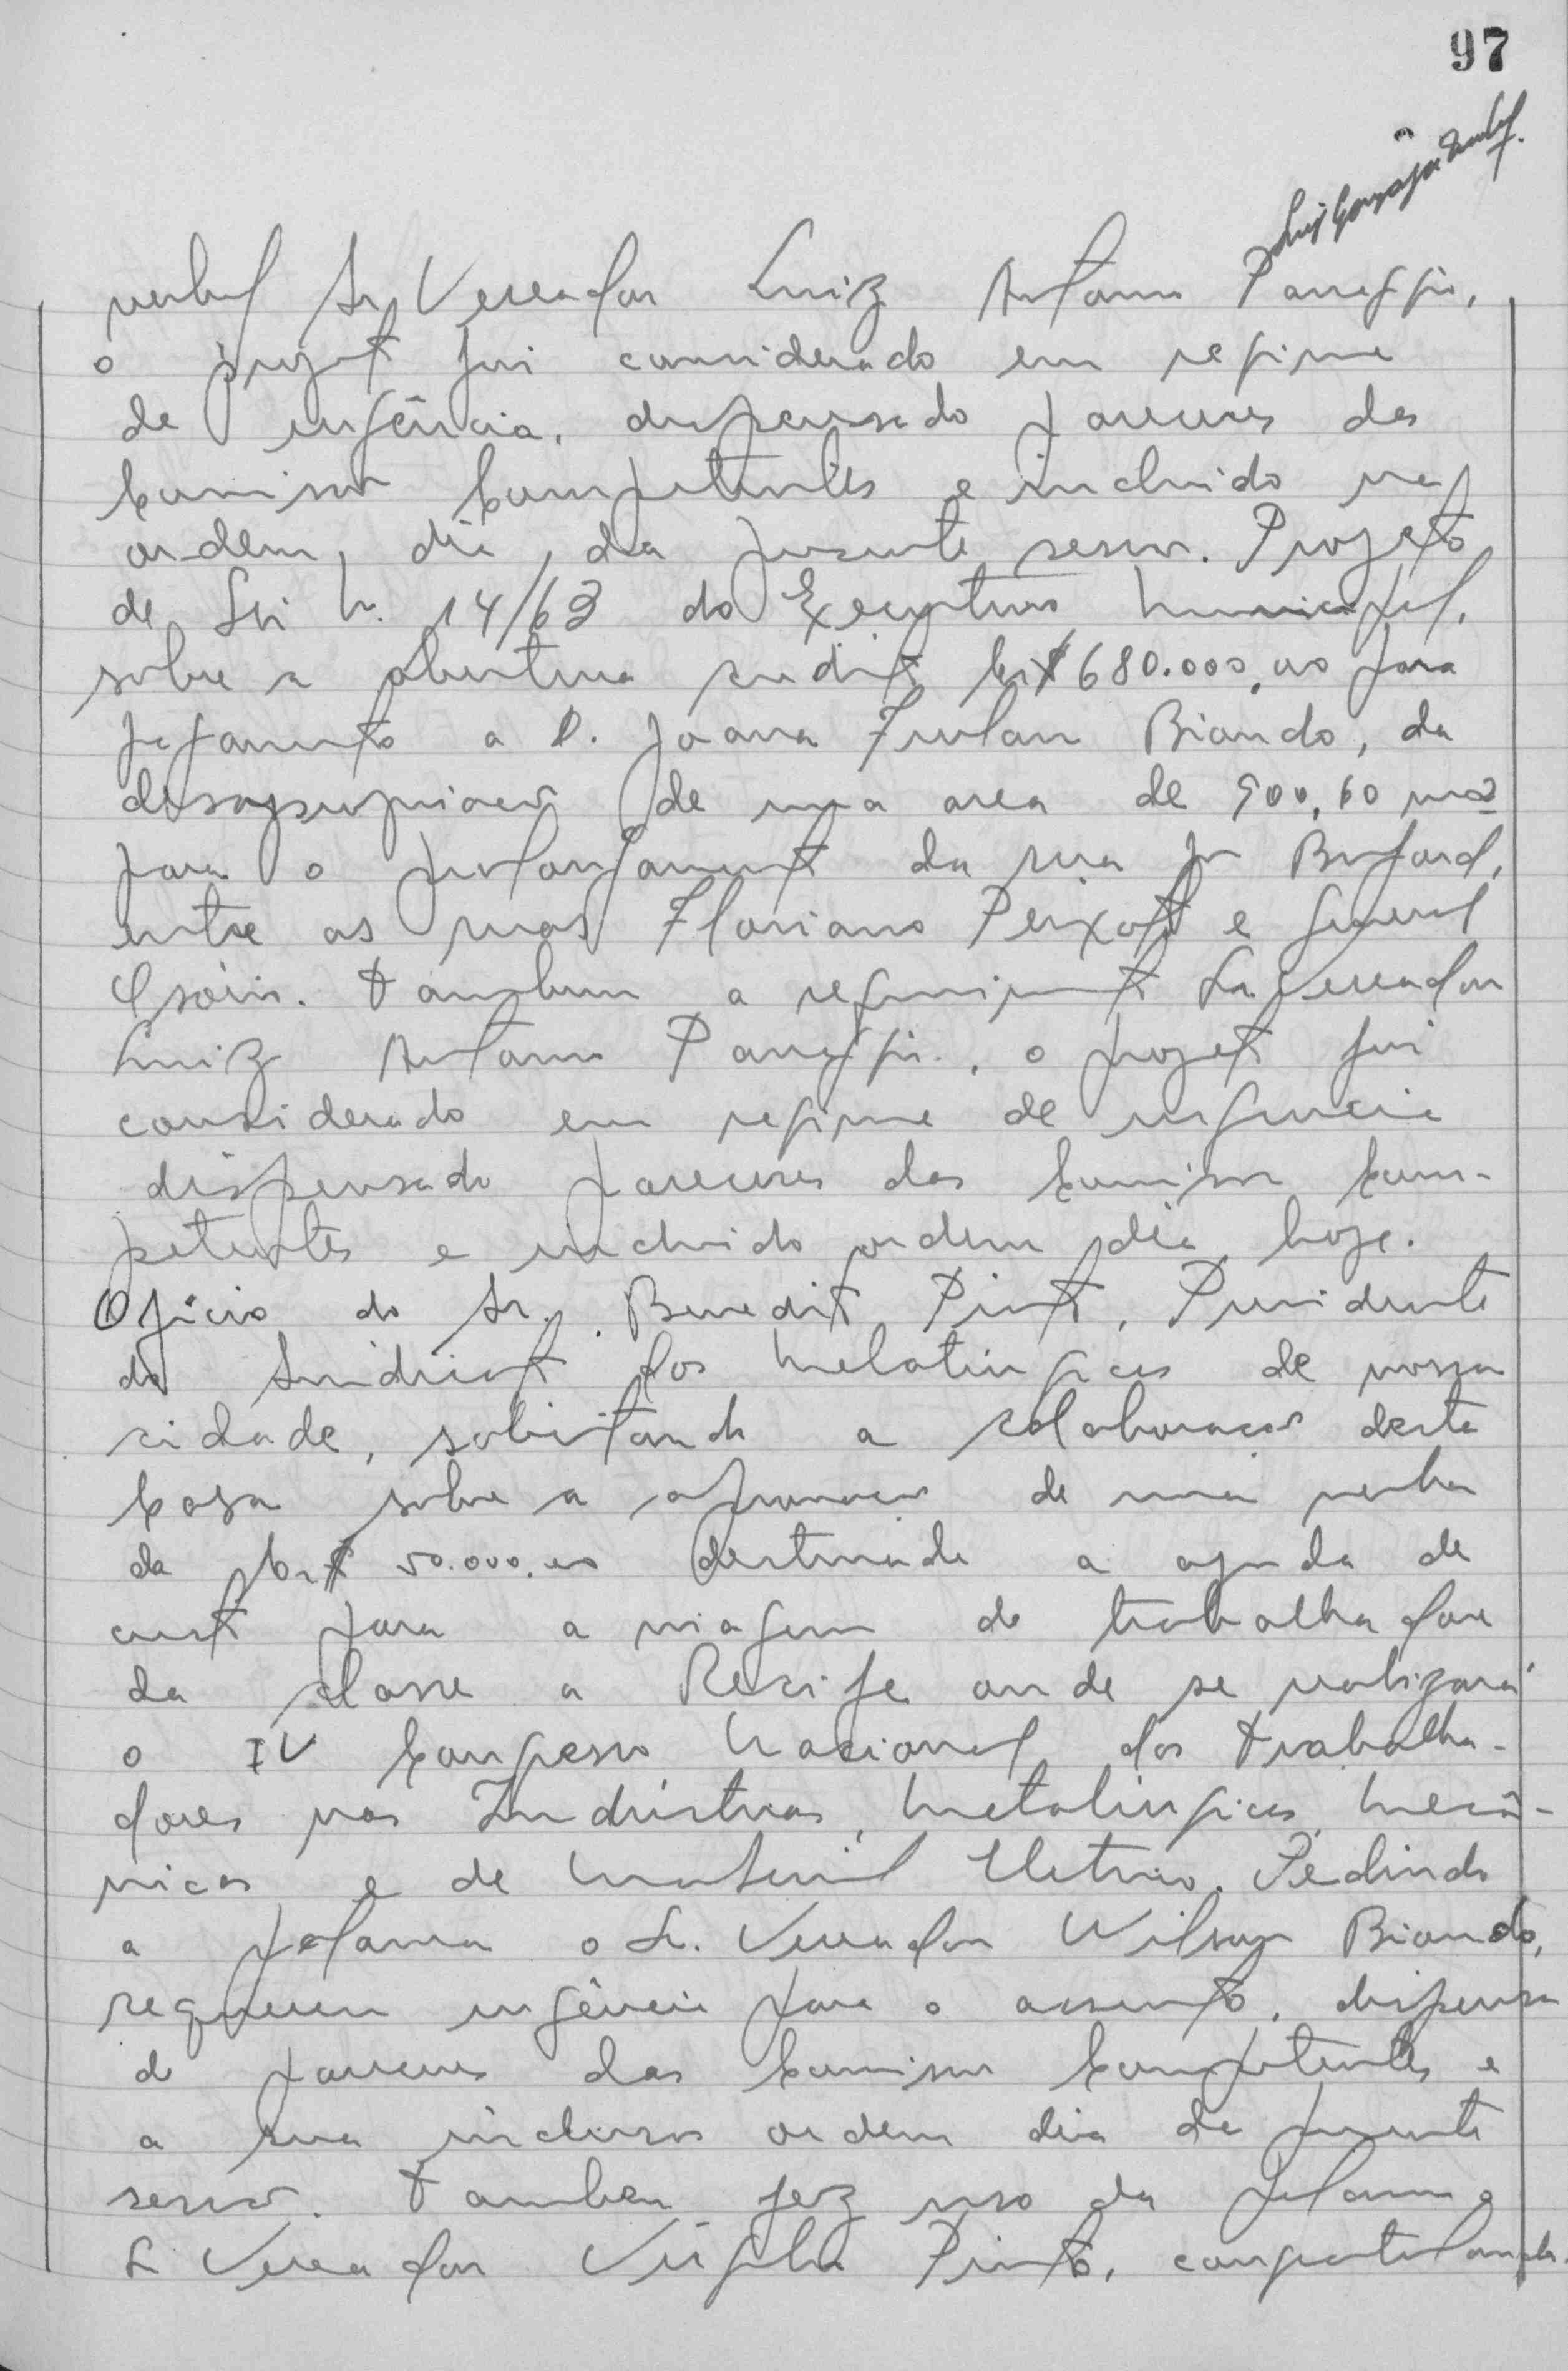 97
verbal Sr. Vereador Luiz Antonio
o projeto foi considerado em regime
de urgência, dispensado pareceres das
Comissões Competentes e incluido na
ordem, dia, da presente sessão. Projeto
de Lei N. 14/63 do Executivo Municipal,
sobre a abertura credito Cr$ 680.000,00 para
pagamento a D. Joana Furlan Biondo, da
desapropriação de uma area de 900,60 m2
para o prolongamento da rua
entre as ruas Floriano Peixoto e General
Osório. Tambem a requerimento Sr. Vereador
Luiz Antonio o projeto foi
considerado em regime de urgencia
dispensado pareceres das Comissões Com-
petentes e incluido ordem dia, hoje.
Oficio do Sr. Benedito Pinto, Presidente
do Sindicato dos Metalúrgicos de nossa
cidade, solicitando a colaboração desta
Casa sobre a aprovação de uma verba
de Cr$ 50.000,00 destinada a ajuda de
custo para a viagem de trabalhadores
da classe a Recife onde se realizará
o IV Congresso Nacional dos Trabalha-
dores nas Indústrias, Metalúrgicas, Mecâ-
nicas e de Material Eletrico. Pedindo
a palavra o Sr. Vereador Wilson Biondo,
requereu urgência para o assunto, dispensa
de pareceres das Comissões Competentes e
a sua inclusão ordem dia da presente
sessão. Tambem fez uso da palavra o
Sr Vereador Virgilio Pinto, congratulando